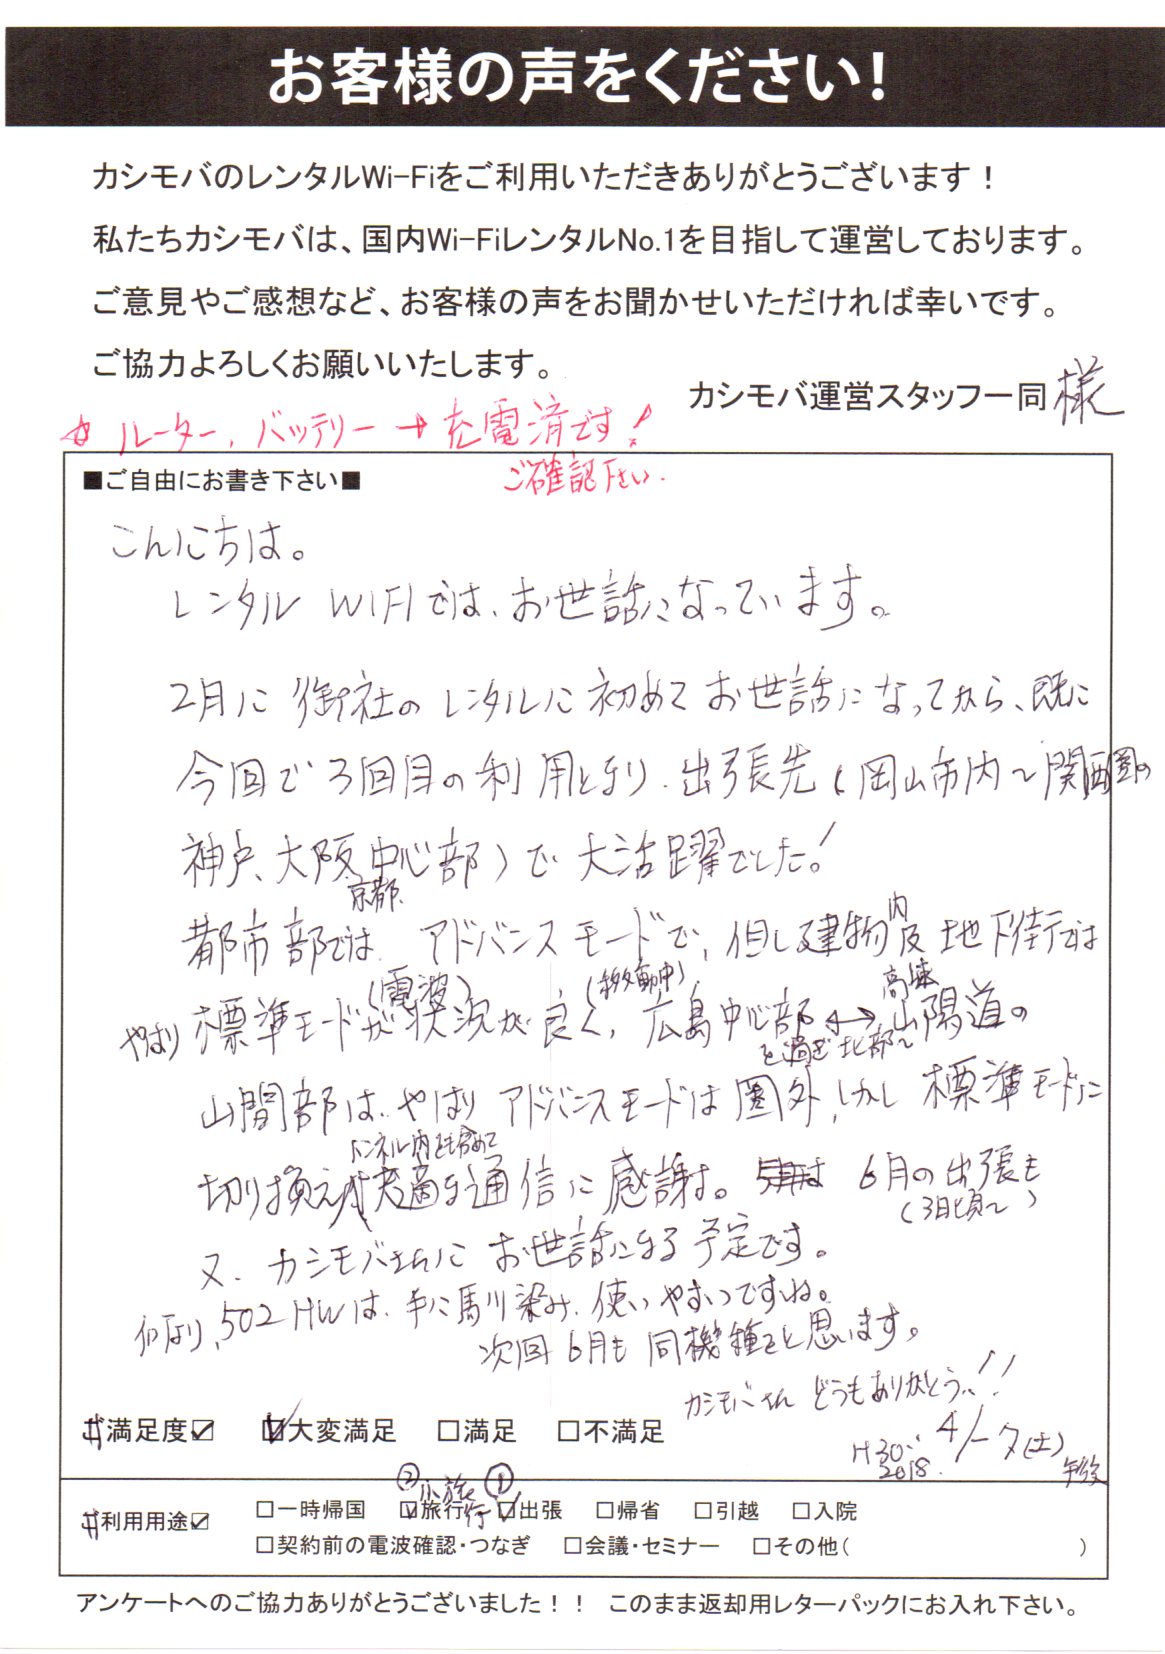 お客様の声をください！
カシモバのレンタルWi-Fiをご利用いただきありがとうございます！
私たちカシモバは、国内Wi-FiレンタルNo.1を目指して運営しております。
ご意見やご感想など、お客様の声をお聞かせいただければ幸いです。
ご協力よろしくお願いいたします。
カシモバ運営スタッフ一同 様
☆ ルーター、バッテリー → 充電済です！
ご確認下さい.
■ご自由にお書き下さい■
こんにちは。
レンタル WIFIでは、お世話になっています。
2月に 御社の レンタルに 初めて お世話になってから、既に
今回で 3回目の利用となり、出張先（岡山市内〜関西圏の
神戸、大阪 中心部）で 大活躍でした！
京都、
都市部では、アドバンスモードで、但し建物内及 地下街では
（電波）（移動中）高速
やはり 標準モードが 状況が良く、広島中心部 ←→ 山陽道の
を過ぎ 北部〜
山間部は、やはり アドバンスモードは 圏外、しかし 標準モードに
トンネル内をも含めて
切り換え 快適な通信に感謝。 6月の出張も
（3日頃〜）
又、カシモバさんに お世話になる予定です。
何より、502HWは、手に馴染み、使いやすいですね。
次回 6月も 同機種をと思います。
カシモバさん どうもありがとう..!!
H30. 4/-7(土)
2018.
満足度☑ ☑大変満足 □満足 □不満足
② 小旅行 ①
利用用途☑ □一時帰国 ☑旅行 ☑出張 □帰省 □引越 □入院
□契約前の電波確認・つなぎ □会議・セミナー □その他( )
アンケートへのご協力ありがとうございました！！ このまま返却用レターパックにお入れ下さい。